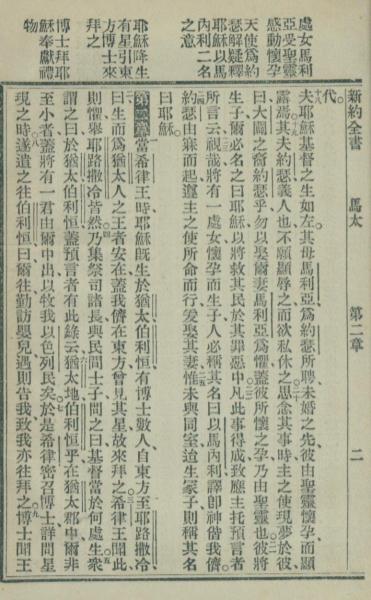 新約全書 馬太 第二章 二
處女馬利
亞受聖靈
感動懷孕
天使為約
瑟解疑釋
耶穌以馬
內利二名
之意
耶穌降生
有星引東
方博士來
拜之
博士拜耶
穌奉獻禮
物
代。
夫耶穌基督之生如左其母馬利亞為約瑟所聘未婚之先彼由聖靈懷孕而顯
露焉其夫約瑟義人也不願顯辱之而欲私休之思念其事時主之使現夢於彼
曰大闢之裔約瑟乎勿以娶爾妻馬利亞為懼蓋彼所懷之孕乃由聖靈也彼將
生子爾必名之曰耶穌以將救其民於其罪惡中凡此事得成致應主托預言者
所言云視哉將有一處女懷孕而生子人必稱其名曰以馬內利譯即神偕我儕
約瑟由寐而起遵主之使所命而行爰娶其妻惟未與同室迨生冢子則稱其名
曰耶穌
第二章當希律王時耶穌既生於猶太伯利恒有博士數人自東方至耶路撒冷
曰生而為猶太人之王者安在蓋我儕在東方曾見其星故來拜之希律王聞此
則懼舉耶路撒冷皆然乃集祭司諸長與民間士子問之曰基督當於何處生衆
謂之曰於猶太伯利恒蓋預言者有此錄云猶太地伯利恒乎在猶太郡中爾非
至小者蓋將有一君由爾中出以牧我以色列民矣於是希律密召博士詳問星
現之時遂遣之往伯利恒曰爾往勤訪嬰兒遇則告我致我亦往拜之博士聞王